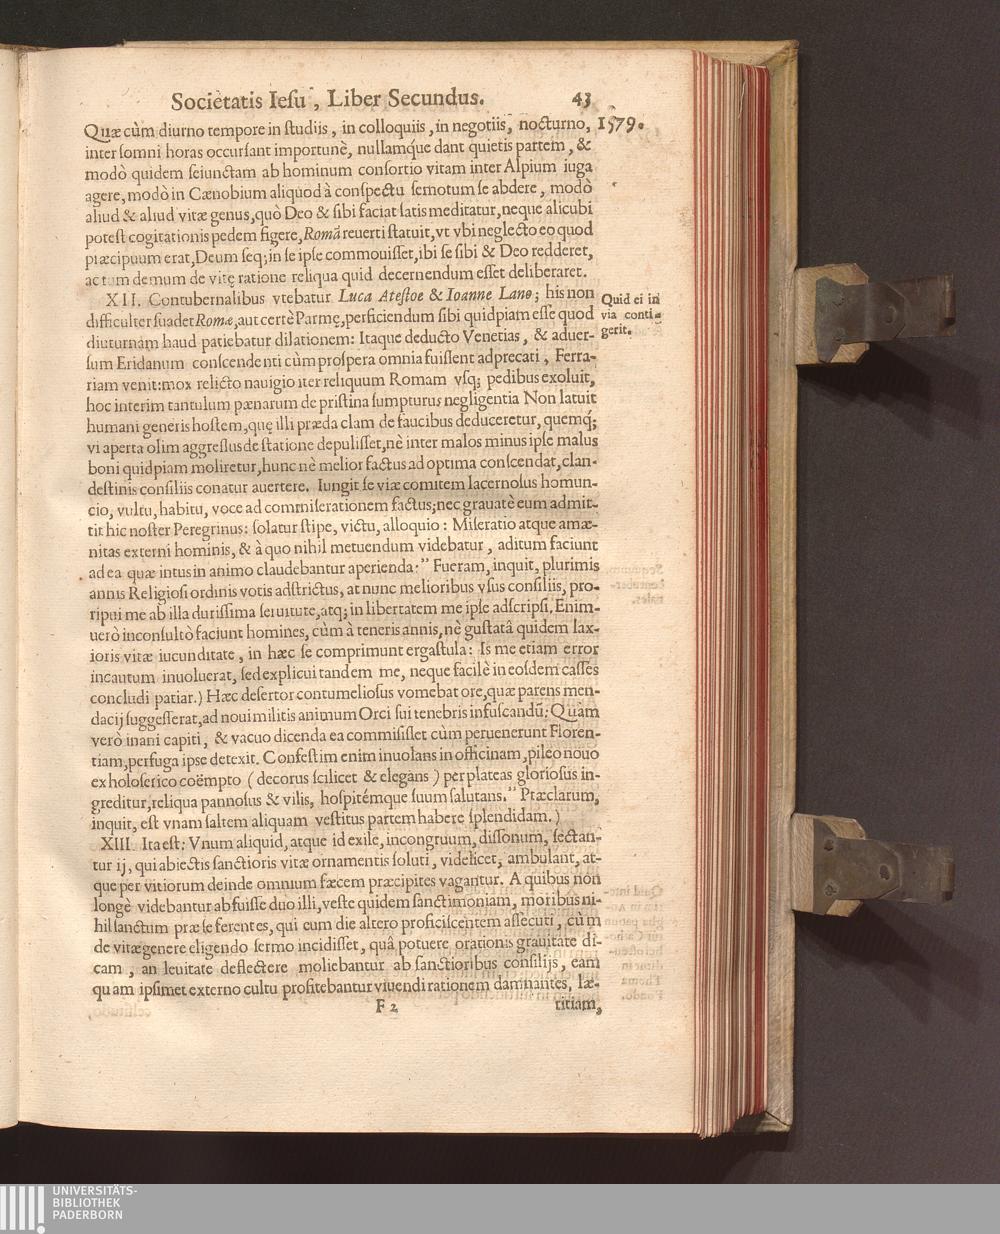 Societatis Iesu, Liber Secundus. 43
Quæ cùm diurno tempore in studiis, in colloquiis, in negotiis, nocturno, 1579.
inter somni horas occursant importunè, nullamq́ue dant quietis partem, &
modò quidem seiunctam ab hominum consortio vitam inter Alpium iuga
agere, modò in Cænobium aliquod à conspectu semotum se abdere, modò
aliud & aliud vitæ genus, quò Deo & sibi faciat satis meditatur, neque alicubi
potest cogitationis pedem figere, Romã reuerti statuit, vt vbi neglecto eo quod
præcipuum erat, Deum seq; in se ipse commouisset, ibi se sibi & Deo redderet,
ac tum demum de vitę ratione reliqua quid decernendum esset deliberaret.
XII. Contubernalibus vtebatur Luca Atestoe & Ioanne Lano; his non
difficulter suadet Romæ, aut certè Parmę, perficiendum sibi quidpiam esse quod
diuturnam haud patiebatur dilationem: Itaque deducto Venetias, & aduer-
sum Eridanum conscendenti cùm prospera omnia fuissent adprecati, Ferra-
riam venit: mox relicto nauigio iter reliquum Romam vsq; pedibus exoluit,
hoc interim tantulum pænarum de pristina sumpturus negligentia Non latuit
humani generis hostem, quę illi præda clam de faucibus deduceretur, quemq́;
vi aperta olim aggressus de statione depulisset, nè inter malos minus ipse malus
boni quidpiam moliretur, hunc nè melior factus ad optima conscendat, clan-
destinis consiliis conatur auertere. Iungit se viæ comitem lacernosus homun-
cio, vultu, habitu, voce ad commiserationem factus; nec grauatè eum admit-
tit hic noster Peregrinus: solatur stipe, victu, alloquio: Miseratio atque amæ-
nitas externi hominis, & à quo nihil metuendum videbatur, aditum faciunt
ad ea quæ intus in animo claudebantur aperienda: " Fueram, inquit, plurimis
annis Religiosi ordinis votis adstrictus, at nunc melioribus vsus consiliis, pro-
ripui me ab illa durissima seruitute, atq; in libertatem me ipse adscripsi. Enim-
uerò inconsultò faciunt homines, cùm à teneris annis, nè gustatâ quidem lax-
ioris vitæ iucunditate, in hæc se comprimunt ergastula: Is me etiam error
incautum inuoluerat, sed explicui tandem me, neque facilè in eosdem casses
concludi patiar.) Hæc desertor contumeliosus vomebat ore, quæ parens men-
dacij suggesserat, ad noui militis animum Orci sui tenebris infuscandũ: Quàm
verò inani capiti, & vacuo dicenda ea commisisset cùm peruenerunt Floren-
tiam, perfuga ipse detexit. Confestim enim inuolans in officinam, pileo nouo
ex holoserico coëmpto (decorus scilicet & elegans) per plateas gloriosus in-
greditur, reliqua pannosus & vilis, hospitémque suum salutans. " Præclarum,
inquit, est vnam saltem aliquam vestitus partem habere splendidam.)
XIII Ita est: Vnum aliquid, atque id exile, incongruum, dissonum, sectan-
tur ij, qui abiectis sanctioris vitæ ornamentis soluti, videlicet, ambulant, at-
que per vitiorum deinde omnium fæcem præcipites vagantur. A quibus non
longè videbantur abfuisse duo illi, veste quidem sanctimoniam, moribus ni-
hil sanctum præ se ferentes, qui cum die altero proficiscentem assecuti, cùm
de vitæ genere eligendo sermo incidisset, quâ potuere orationis grauitate di-
cam, an leuitate deflectere moliebantur ab sanctioribus consilijs, eam
quam ipsimet externo cultu profitebantur viuendi rationem damnantes, læ-
F 2 titiam,
Quid ei in
via conti-
gerit.
UNIVERSITÄTS-
BIBLIOTHEK
PADERBORN